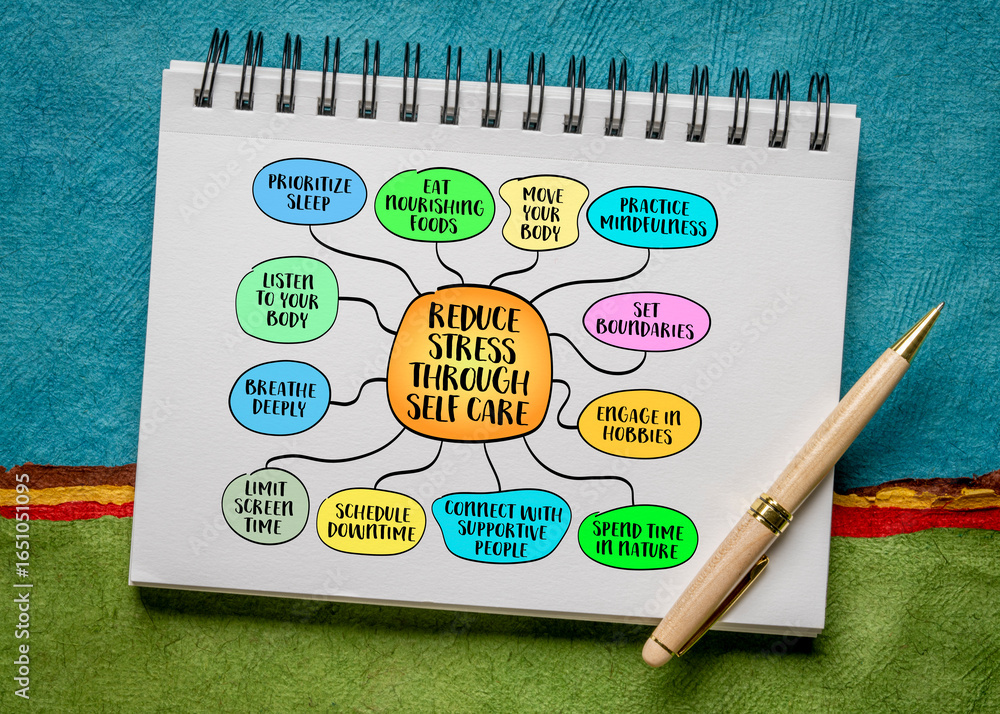 PRIORITIZE
SLEEP
EAT
NOURISHING
FOODS
MOVE
YOUR
BODY
PRACTICE
MINDFULNESS
LISTEN
TO YOUR
BODY
REDUCE
STRESS
THROUGH
SELF CARE
SET
BOUNDARIES
BREATHE
DEEPLY
ENGAGE IN
HOBBIES
LIMIT
SCREEN
TIME
SCHEDULE
DOWNTIME
CONNECT WITH
SUPPORTIVE
PEOPLE
SPEND TIME
IN NATURE
Adobe Stock | #1651051095